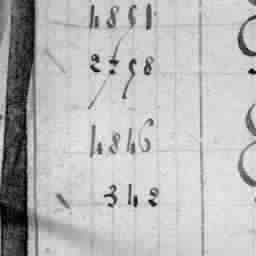 4851
2758
4846
342